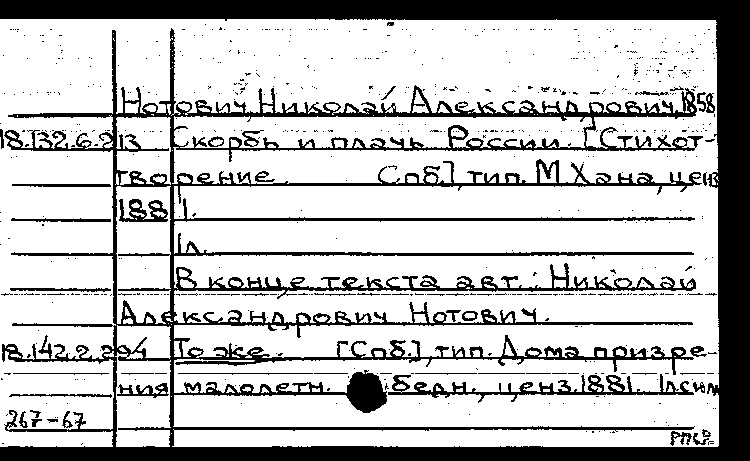 Нотович, Николай Александрович, 1858
18.132.6.213 Скорбь и плачь России. [Стихот-
творение. Спб.], тип. М Хана, ценз
1881.
1л.
В конце текста авт.: Николай
Александрович Нотович.
18.142.2.294 То же. [Спб.], тип. Дома призре-
ния малолетн. бедн., ценз. 1881. 1л
267-67